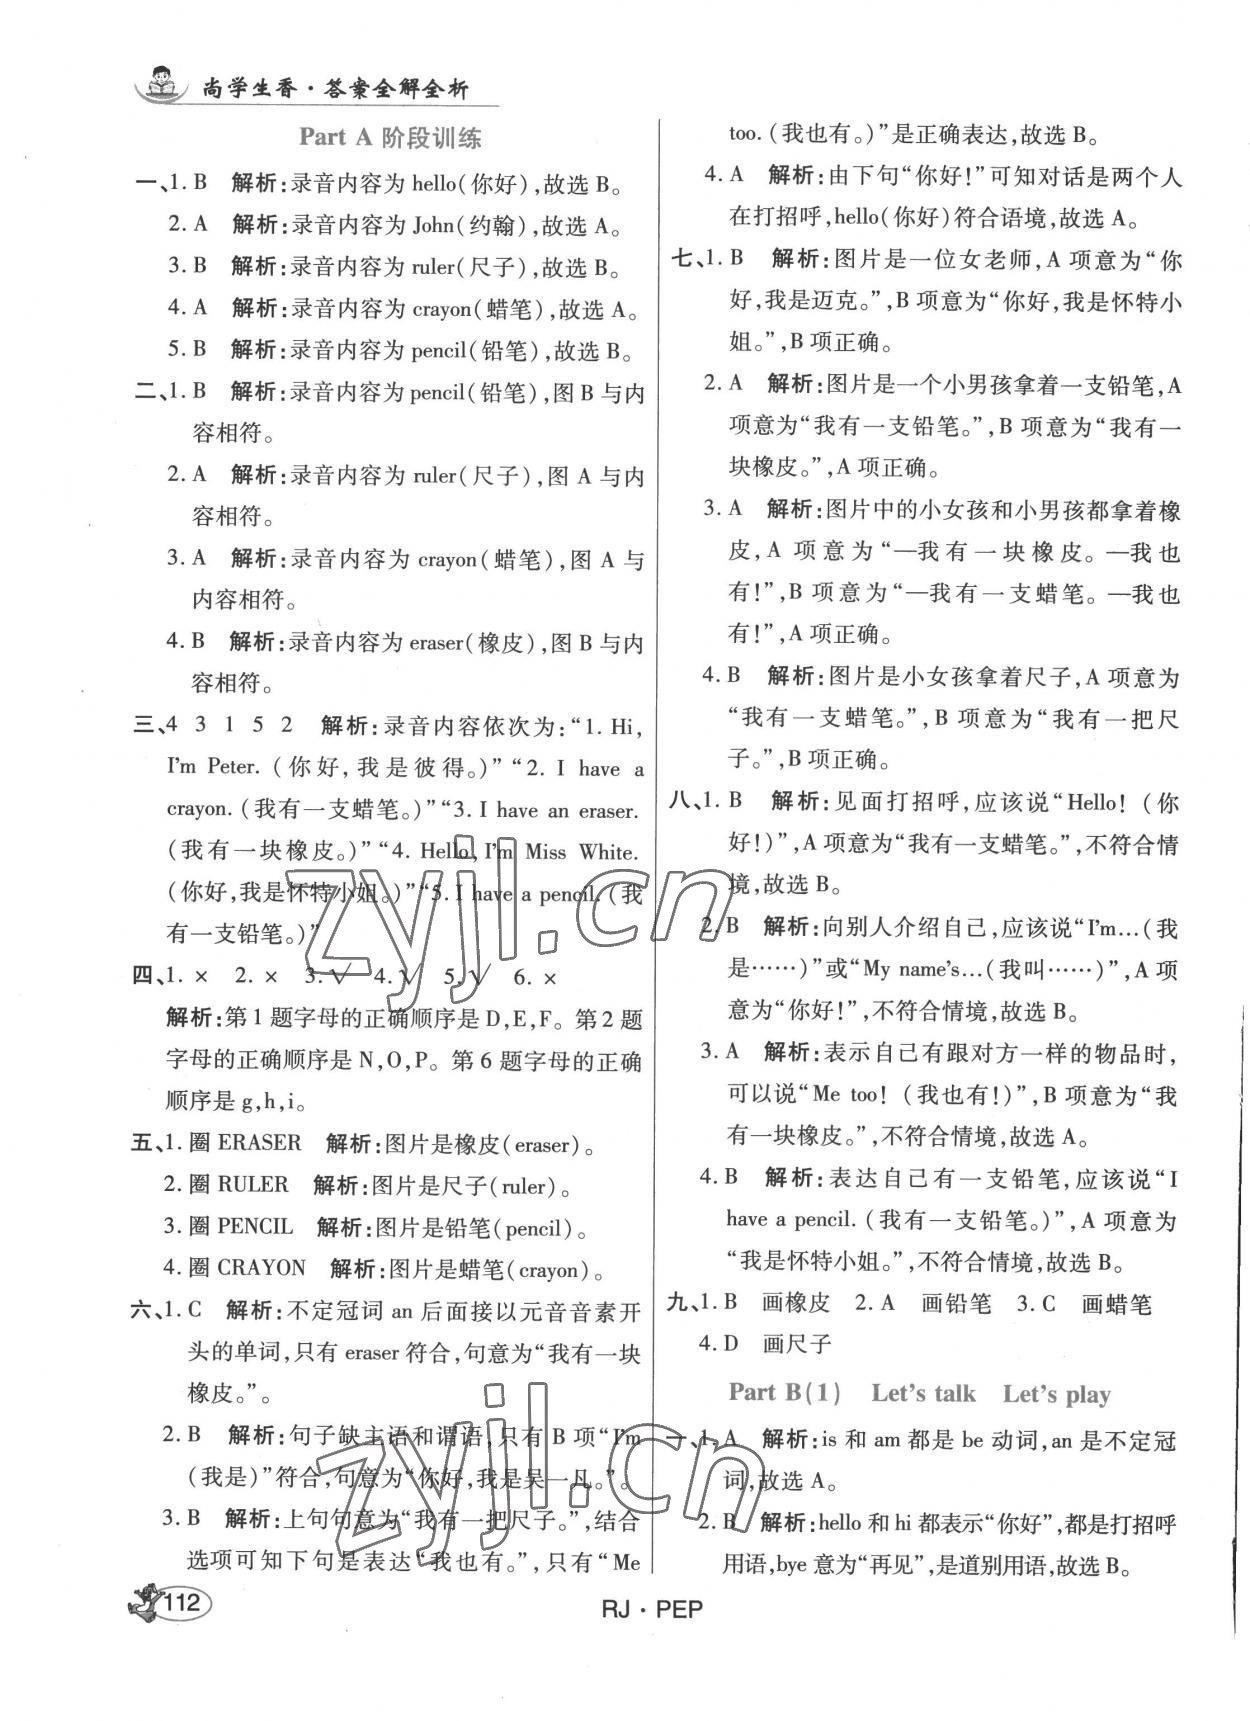 尚学生香·答案全解全析
Part A 阶段训练
一、1. B 解析:录音内容为 hello(你好),故选 B。
2. A 解析:录音内容为 John(约翰),故选 A。
3. B 解析:录音内容为 ruler(尺子),故选 B。
4. A 解析:录音内容为 crayon(蜡笔),故选 A。
5. B 解析:录音内容为 pencil(铅笔),故选 B。
二、1. B 解析:录音内容为 pencil(铅笔),图 B 与内
容相符。
2. A 解析:录音内容为 ruler(尺子),图 A 与内
容相符。
3. A 解析:录音内容为 crayon(蜡笔),图 A 与
内容相符。
4. B 解析:录音内容为 eraser(橡皮),图 B 与内
容相符。
三、4 3 1 5 2 解析:录音内容依次为:“1. Hi,
I'm Peter. (你好,我是彼得。)”“2. I have a
crayon. (我有一支蜡笔。)”“3. I have an eraser.
(我有一块橡皮。)”“4. Hello, I'm Miss White.
(你好,我是怀特小姐。)”“5. I have a pencil. (我
有一支铅笔。)”
四、1. × 2. × 3. √ 4. √ 5. √ 6. ×
解析:第 1 题字母的正确顺序是 D,E,F。第 2 题
字母的正确顺序是 N,O,P。第 6 题字母的正确
顺序是 g,h,i。
五、1. 圈 ERASER 解析:图片是橡皮(eraser)。
2. 圈 RULER 解析:图片是尺子(ruler)。
3. 圈 PENCIL 解析:图片是铅笔(pencil)。
4. 圈 CRAYON 解析:图片是蜡笔(crayon)。
六、1. C 解析:不定冠词 an 后面接以元音音素开
头的单词,只有 eraser 符合,句意为“我有一块
橡皮。”。
2. B 解析:句子缺主语和谓语,只有 B 项“I'm
(我是)”符合,句意为“你好,我是吴一凡。”。
3. B 解析:上句句意为“我有一把尺子。”,结合
选项可知下句是表达“我也有。”,只有“Me
too. (我也有。)”是正确表达,故选 B。
4. A 解析:由下句“你好!”可知对话是两个人
在打招呼,hello(你好)符合语境,故选 A。
七、1. B 解析:图片是一位女老师,A 项意为“你
好,我是迈克。”,B 项意为“你好,我是怀特小
姐。”,B 项正确。
2. A 解析:图片是一个小男孩拿着一支铅笔,A
项意为“我有一支铅笔。”,B 项意为“我有一
块橡皮。”,A 项正确。
3. A 解析:图片中的小女孩和小男孩都拿着橡
皮,A 项意为“—我有一块橡皮。—我也
有!”,B 项意为“—我有一支蜡笔。—我也
有!”,A 项正确。
4. B 解析:图片是小女孩拿着尺子,A 项意为
“我有一支蜡笔。”,B 项意为“我有一把尺
子。”,B 项正确。
八、1. B 解析:见面打招呼,应该说“Hello! (你
好!)”,A 项意为“我有一支蜡笔。”,不符合情
境,故选 B。
2. B 解析:向别人介绍自己,应该说“I'm…(我
是……)”或“My name's…(我叫……)”,A 项
意为“你好!”,不符合情境,故选 B。
3. A 解析:表示自己有跟对方一样的物品时,
可以说“Me too! (我也有!)”,B 项意为“我
有一块橡皮。”,不符合情境,故选 A。
4. B 解析:表达自己有一支铅笔,应该说“I
have a pencil. (我有一支铅笔。)”,A 项意为
“我是怀特小姐。”,不符合情境,故选 B。
九、1. B 画橡皮 2. A 画铅笔 3. C 画蜡笔
4. D 画尺子
Part B(1) Let's talk Let's play
一、1. A 解析:is 和 am 都是 be 动词,an 是不定冠
词,故选 A。
2. B 解析:hello 和 hi 都表示“你好”,都是打招呼
用语,bye 意为“再见”,是道别用语,故选 B。
zyjl.cn
zyjl.cn
112
RJ·PEP